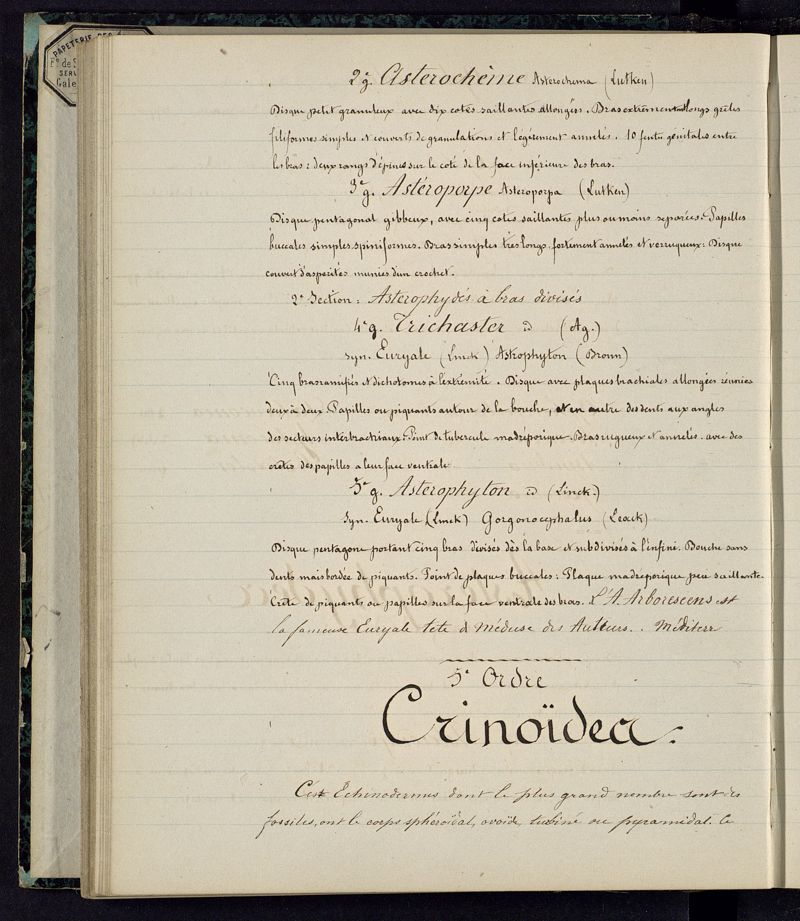 PAPETERIE DES
2e g. Asterochème Asterochema (Lutken)
Disque petit granuleux avec dix cotes saillantes allongées. Bras extrêmement longs grêles
filiformes simples et couverts de granulations et légèrement annelés. 10 fentes génitales entre
les bras : deux rangs d'épines sur le coté de la face inférieure des bras.
3e g. Astéroporpe Asteroporpa (Lutken)
Disque pentagonal gibbeux, avec cinq cotes saillantes plus ou moins separées. Papilles
buccales simples spiniformes. Bras simples très longs, fortement annelés et verruqueux : Disque
couvert d'asperités munies d'un crochet.
2e Section : Asterophydés à bras divisés
4e g. Trichaster id (Ag.)
Syn. Euryale (Linck) Astrophyton (Bronn)
Cinq bras ramifiés et dichotomes à l'extrémité. Disque avec plaques brachiales allongées réunies
deux à deux. Papilles ou piquants autour de la bouche, et en outre des dents aux angles
des secteurs interbrachiaux. Point de tubercule madréporique. Bras rugueux et annelés. avec des
crêtes des papilles a leur face ventrale
5e g. Asterophyton id (Linck.)
Syn. Euryale (Linck) Gorgonocephalus (Leack)
Disque pentagone portant cinq bras divisés dès la base et subdivisés à l'infini. Bouche sans
dents mais bordée de piquants. Point de plaques buccales : Plaque madreporique peu saillante.
Crête de piquants ou papilles sur la face ventrale des bras. L'A. Arborescens est
la fameuse Euryale tete d Méduse des Auteurs. Méditerr
5e Ordre
Crinoïdea.
Ces Echinodermes dont le plus grand nombre sont des
fossiles, ont le corps sphéroïdal, ovoïde, turbiné ou pyramidal. Ce